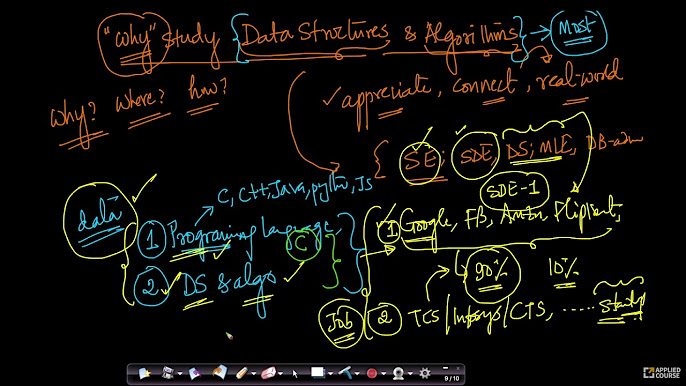 "why" study {Data Structures & Algorithms} → Most
why? where? how?
✓ appreciate, connect, real-world
{ SE, SDE, DS, MLE, DB-adm
SDE-1
data ✓
C, C++, Java, python, JS
1 Programing Language,
C
2 DS & algo ✓
1 Google, FB, Amzn, Flipkart,
90% 10%
Job 2 TCS/Infosys/CTS, ...... Startup
9 / 10
APPLIED
COURSE